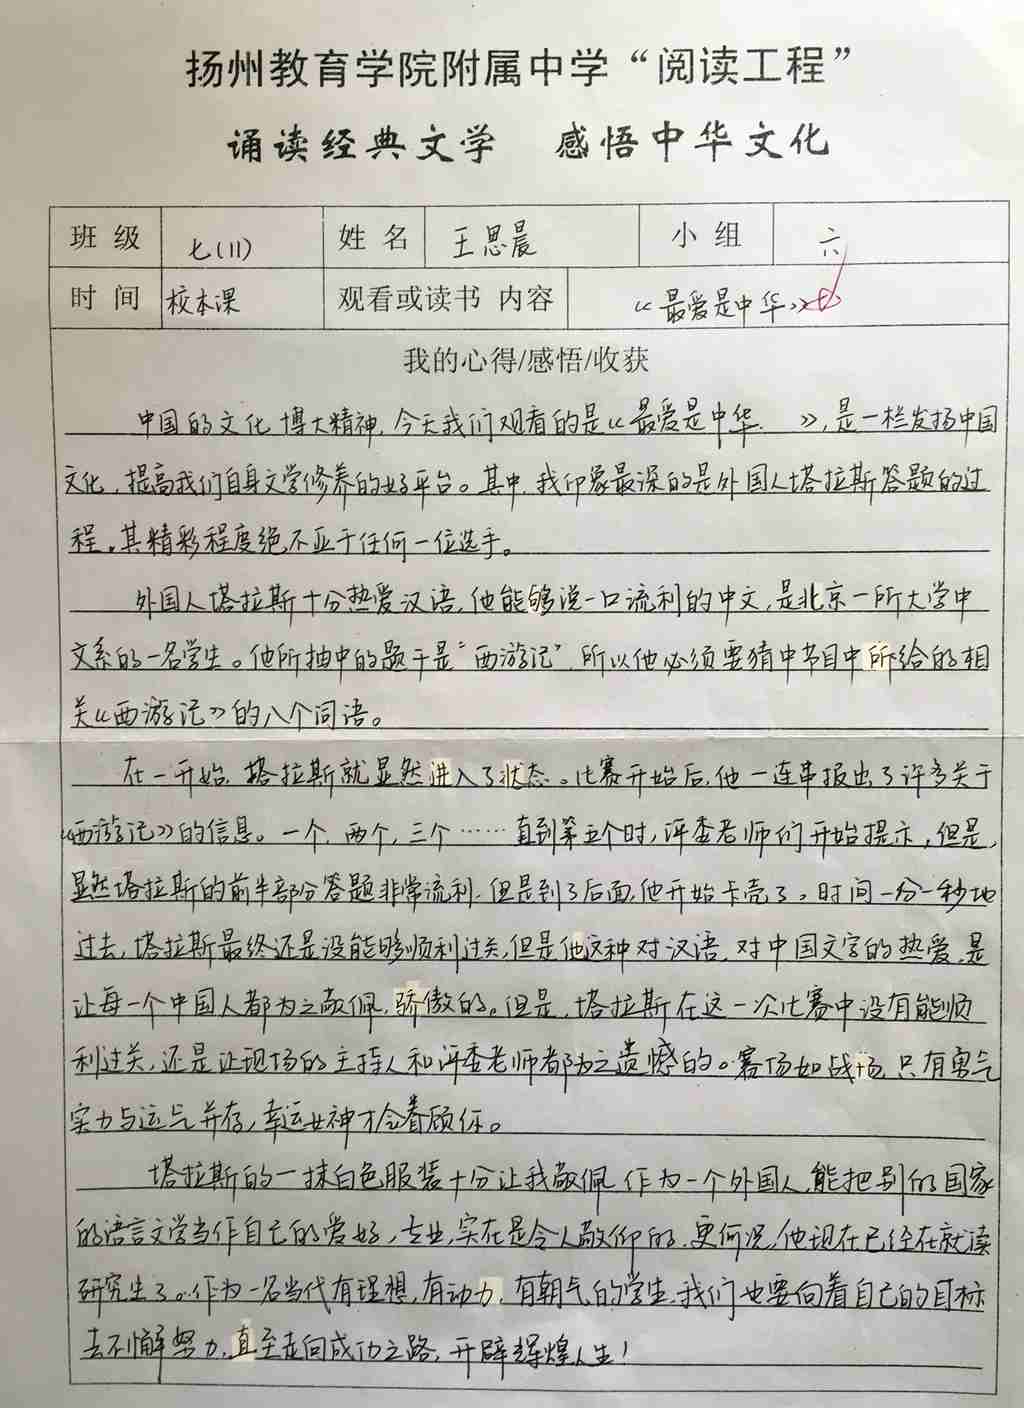 扬州教育学院附属中学“阅读工程”
诵读经典文学 感悟中华文化
班级 七(11) 姓名 王思晨 小组 六
时间 校本课 观看或读书 内容 《最爱是中华》
我的心得/感悟/收获
中国的文化博大精神,今天我们观看的是《最爱是中华 》,是一栏发扬中国
文化,提高我们自身文学修养的好平台。其中,我印象最深的是外国人塔拉斯答题的过
程。其精彩程度绝不亚于任何一位选手。
外国人塔拉斯十分热爱汉语,他能够说一口流利的中文,是北京一所大学中
文系的一名学生。他所抽中的题干是“西游记”,所以他必须要猜中节目中所给的相
关《西游记》的八个词语。
在一开始,塔拉斯就显然进入了状态。比赛开始后,他一连串报出了许多关于
《西游记》的信息。一个,两个,三个……直到第五个时,评委老师们开始提示,但是,
显然塔拉斯的前半部分答题非常流利,但是到了后面,他开始卡壳了。时间一分一秒地
过去,塔拉斯最终还是没能够顺利过关,但是他这种对汉语,对中国文字的热爱,是
让每一个中国人都为之敬佩,骄傲的。但是,塔拉斯在这一次比赛中没有能顺
利过关,还是让现场的主持人和评委老师都为之遗憾的。赛场如战场,只有勇气
实力与运气并存,幸运女神才会眷顾你。
塔拉斯的一抹白色服装十分让我敬佩,作为一个外国人,能把别的国家
的语言文学当作自己的爱好,专业,实在是令人敬仰的,更何况,他现在已经在就读
研究生了。作为一名当代有理想,有动力,有朝气的学生,我们也要向着自己的目标
去不懈努力,直至走向成功之路,开辟辉煌人生!